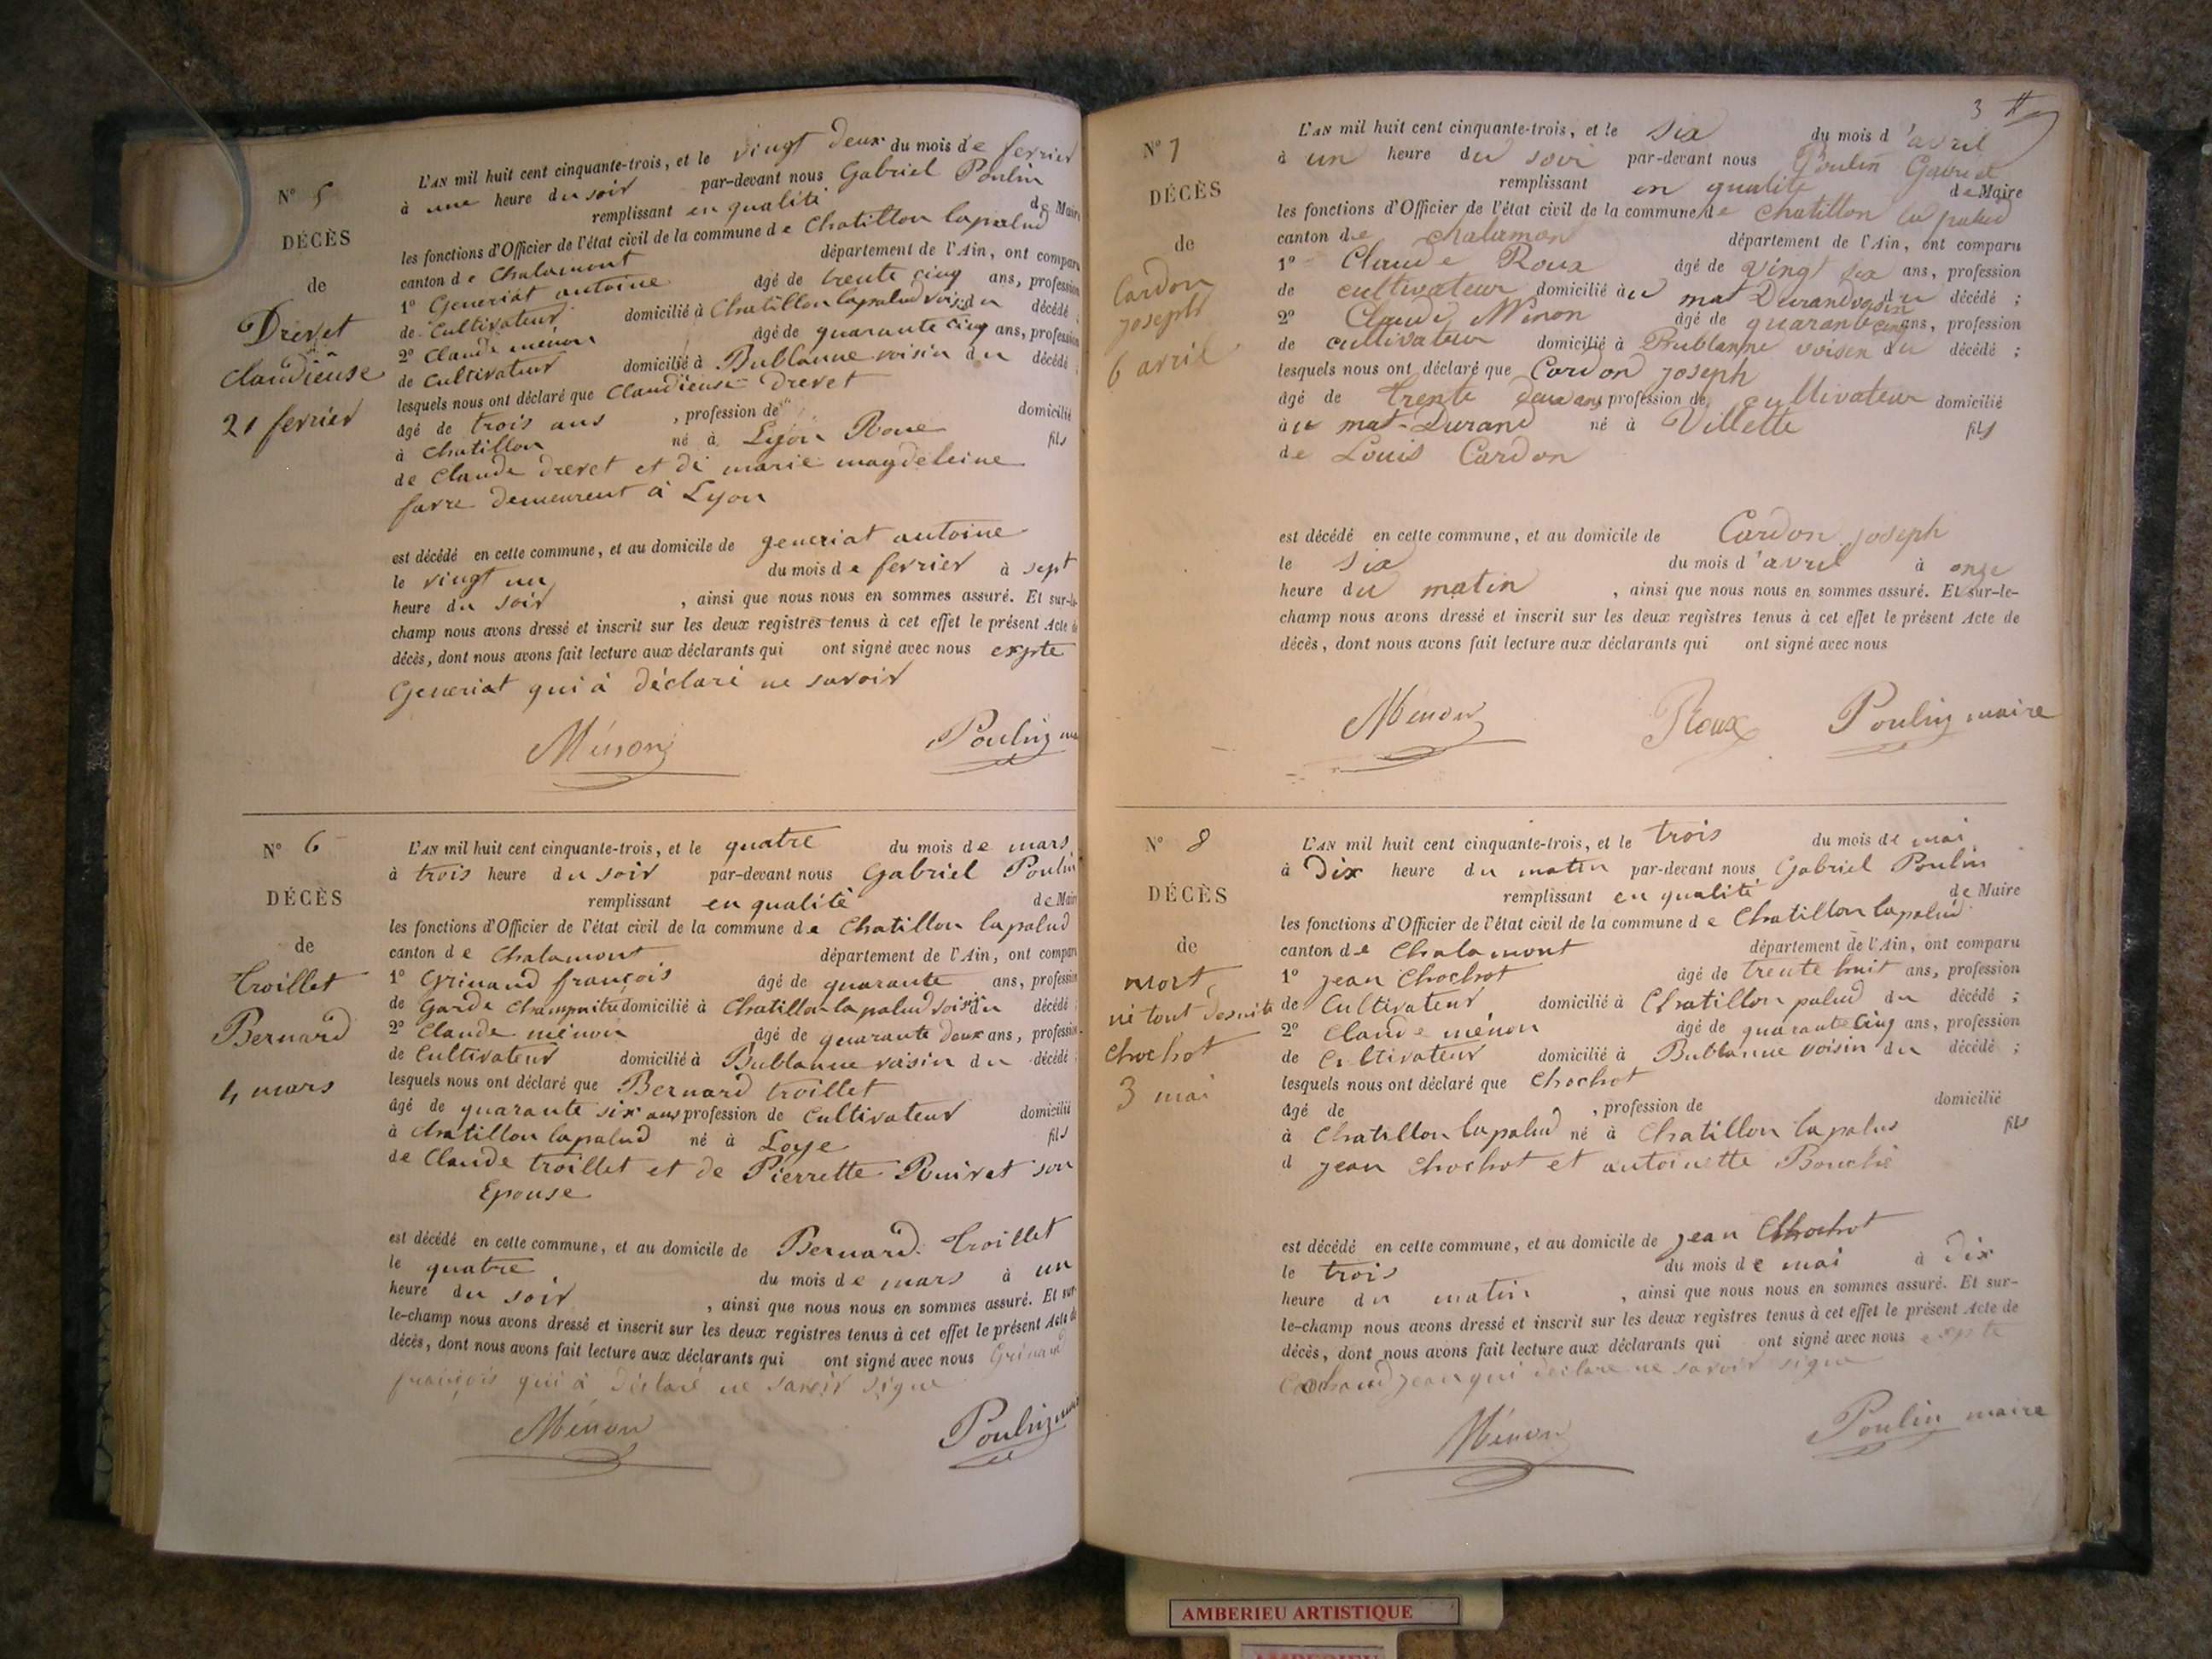 N° 5
DÉCÈS
de
Drevet
Claudieuse
21 fevrier
L'AN mil huit cent cinquante-trois, et le vingt deux du mois de fevrier
à une heure du soir par-devant nous Gabriel Poulin
remplissant en qualité de Maire
les fonctions d'Officier de l'état civil de la commune de Chatillon lapalud
canton de Chalamont département de l'Ain, ont compar
1° Generiat antoine âgé de trente cinq ans, profession
de Cultivateur domicilié à Chatillon lapalud voisin du décédé ;
2° Claude ménon âgé de quarante cinq ans, profession
de Cultivateur domicilié à Bublanne voisin du décédé ;
lesquels nous ont déclaré que Claudieuse Drevet
âgé de trois ans , profession de domicilié
à Chatillon né à Lyon Rone fils
de Claude drevet et de marie magdeleine
favre demeurent à Lyon
est décédé en cette commune, et au domicile de generiat antoine
le vingt un du mois de fevrier à sept
heure du soir , ainsi que nous nous en sommes assuré. Et sur-le-
champ nous avons dressé et inscrit sur les deux registres tenus à cet effet le présent Acte de
décès, dont nous avons fait lecture aux déclarants qui ont signé avec nous expte
Generiat qui à déclaré ne savoir
Ménon Poulin
N° 6
DÉCÈS
de
troillet
Bernard
4 mars
L'AN mil huit cent cinquante-trois, et le quatre du mois de mars
à trois heure du soir par-devant nous Gabriel Poulin
remplissant en qualité de Maire
les fonctions d'Officier de l'état civil de la commune de Chatillon lapalud
canton de Chalamont département de l'Ain, ont compar
1° Grinand françois âgé de quarante ans, profession
de Garde Champaitre domicilié à Chatillon lapalud voisin du décédé ;
2° Claude ménon âgé de quarante deux ans, profession
de Cultivateur domicilié à Bublanne voisin du décédé ;
lesquels nous ont déclaré que Bernard troillet
âgé de quarante six ans profession de Cultivateur domicilié
à chatillon lapalud né à Loye fils
de Claude troillet et de Pierrette Ruivet son
Epouse
est décédé en cette commune, et au domicile de Bernard troillet
le quatre du mois de mars à un
heure du soir , ainsi que nous nous en sommes assuré. Et sur-
le-champ nous avons dressé et inscrit sur les deux registres tenus à cet effet le présent Acte de
décès, dont nous avons fait lecture aux déclarants qui ont signé avec nous Grinand
françois qui à déclaré ne savoir signe
Ménon Poulin
3
N° 7
DÉCÈS
de
Cardon
joseph
6 avril
L'AN mil huit cent cinquante-trois, et le six du mois d'avril
à un heure du soir par-devant nous Poulin Gabriel
remplissant en qualité de Maire
les fonctions d'Officier de l'état civil de la commune de chatillon la palud
canton de chalamon département de l'Ain, ont comparu
1° Claude Roux âgé de vingt six ans, profession
de cultivateur domicilié au mat Durand voisin du décédé ;
2° Claude Minon âgé de quarante cinq ans, profession
de cultivateur domicilié à Bublanne voisen du décédé ;
lesquels nous ont déclaré que Cardon joseph
âgé de trente deux ans profession de cultivateur domicilié
au mat-Durand né à Villette fils
de Louis Cardon
est décédé en cette commune, et au domicile de Cardon joseph
le six du mois d'avril à onze
heure du matin , ainsi que nous nous en sommes assuré. Et sur-le-
champ nous avons dressé et inscrit sur les deux registres tenus à cet effet le présent Acte de
décès, dont nous avons fait lecture aux déclarants qui ont signé avec nous
Ménon Roux Poulin maire
N° 8
DÉCÈS
de
mort
né tout desuite
Chochot
3 mai
L'AN mil huit cent cinquante-trois, et le trois du mois de mai
à Dix heure du matin par-devant nous Gabriel Poulin
remplissant en qualité de Maire
les fonctions d'Officier de l'état civil de la commune de Chatillon lapalud
canton de Chalamont département de l'Ain, ont comparu
1° jean Chochot âgé de trente huit ans, profession
de Cultivateur domicilié à Chatillon palud du décédé ;
2° Claude ménon âgé de quarante Cinq ans, profession
de Cultivateur domicilié à Bublanne voisin du décédé ;
lesquels nous ont déclaré que Chochot
âgé de , profession de domicilié
à Chatillon lapalud né à Chatillon lapalus fils
d jean chochot et antoinette Bouchié
est décédé en cette commune, et au domicile de jean Chochot
le trois du mois de mai à Dix
heure du matin , ainsi que nous nous en sommes assuré. Et sur-
le-champ nous avons dressé et inscrit sur les deux registres tenus à cet effet le présent Acte de
décès, dont nous avons fait lecture aux déclarants qui ont signé avec nous expte
jean qui declare ne savoir signe
Ménon Poulin maire
AMBERIEU ARTISTIQUE
AMBERIEU